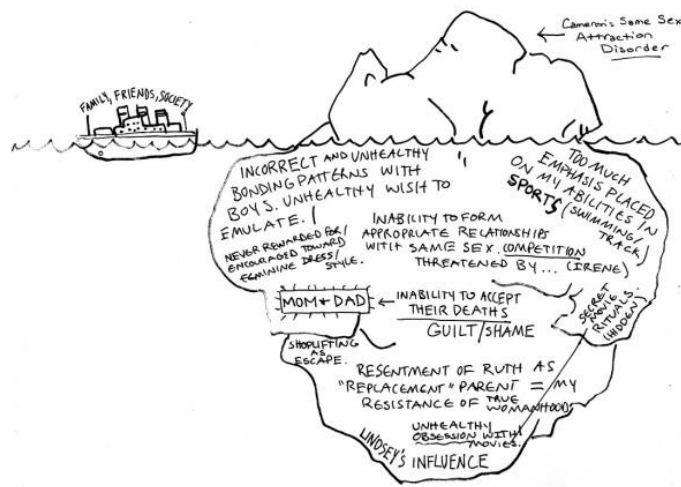 Cameron's Same Sex
Attraction
Disorder
FAMILY, FRIENDS, SOCIETY
INCORRECT AND UNHEALTHY
BONDING PATTERNS WITH
BOYS. UNHEALTHY WISH TO
EMULATE.
TOO MUCH
EMPHASIS PLACED
ON MY ABILITIES IN
SPORTS (SWIMMING/
TRACK)
NEVER REWARDED FOR/
ENCOURAGED TOWARD
FEMININE DRESS/
STYLE.
INABILITY TO FORM
APPROPRIATE RELATIONSHIPS
WITH SAME SEX. COMPETITION
THREATENED BY... (IRENE)
MOM & DAD
INABILITY TO ACCEPT
THEIR DEATHS
GUILT/SHAME
SECRET
MOVIE
RITUALS.
(HIDDEN)
SHOPLIFTING
AS
ESCAPE.
RESENTMENT OF RUTH AS
"REPLACEMENT" PARENT = MY
RESISTANCE OF TRUE
WOMANHOOD
UNHEALTHY
OBSESSION WITH
MOVIES.
LINDSEY'S INFLUENCE